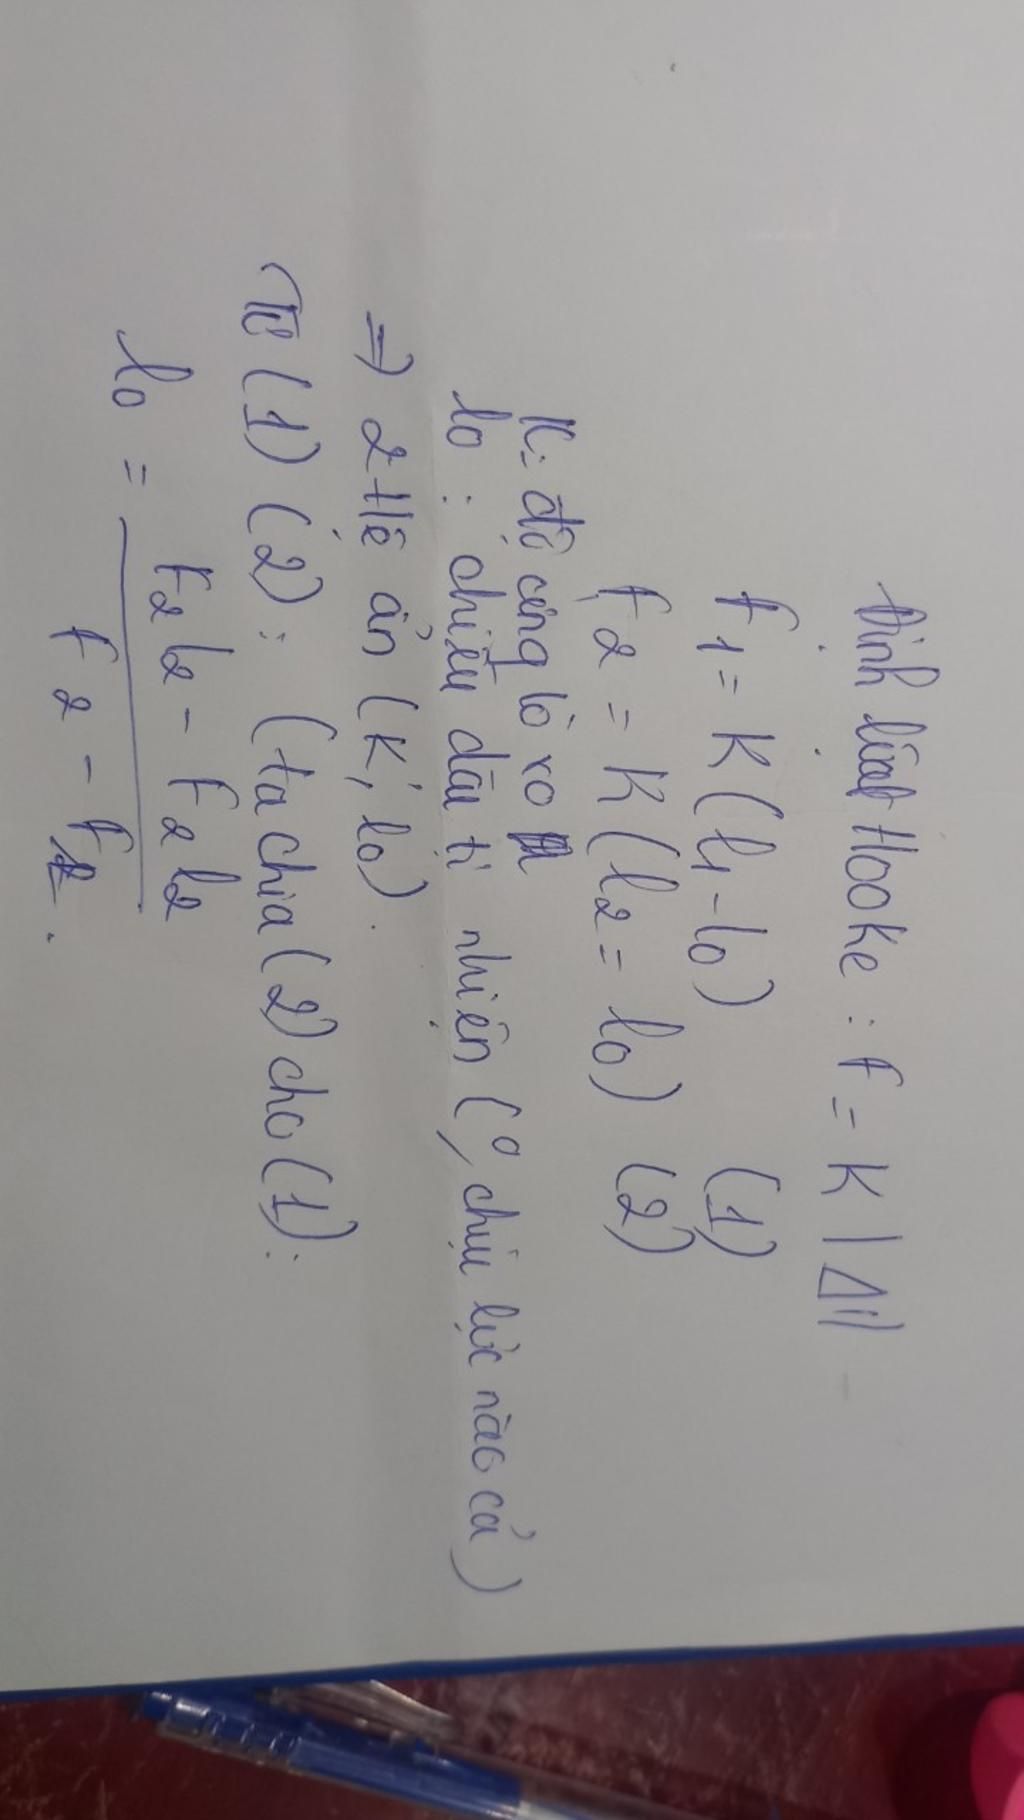 Định luật Hooke : F = K |Δl|
F1 = K (l1 - l0) (1)
F2 = K (l2 = l0) (2)
K: độ cứng lò xo
l0 : chiều dài tự nhiên ( chịu lực nào cả)
=> 2 Hệ ẩn (K, l0).
Từ (1) (2): (ta chia (2) cho (1):
l0 = F2 l2 - F2 l2
F2 - F1.